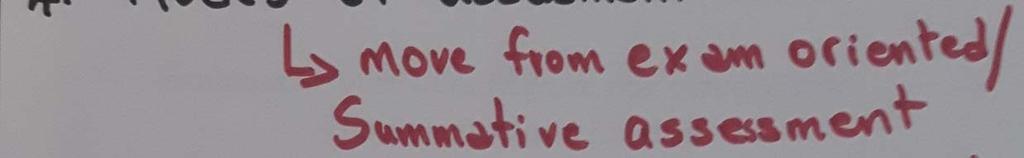 ↳ move from exam oriented/
Summative assessment